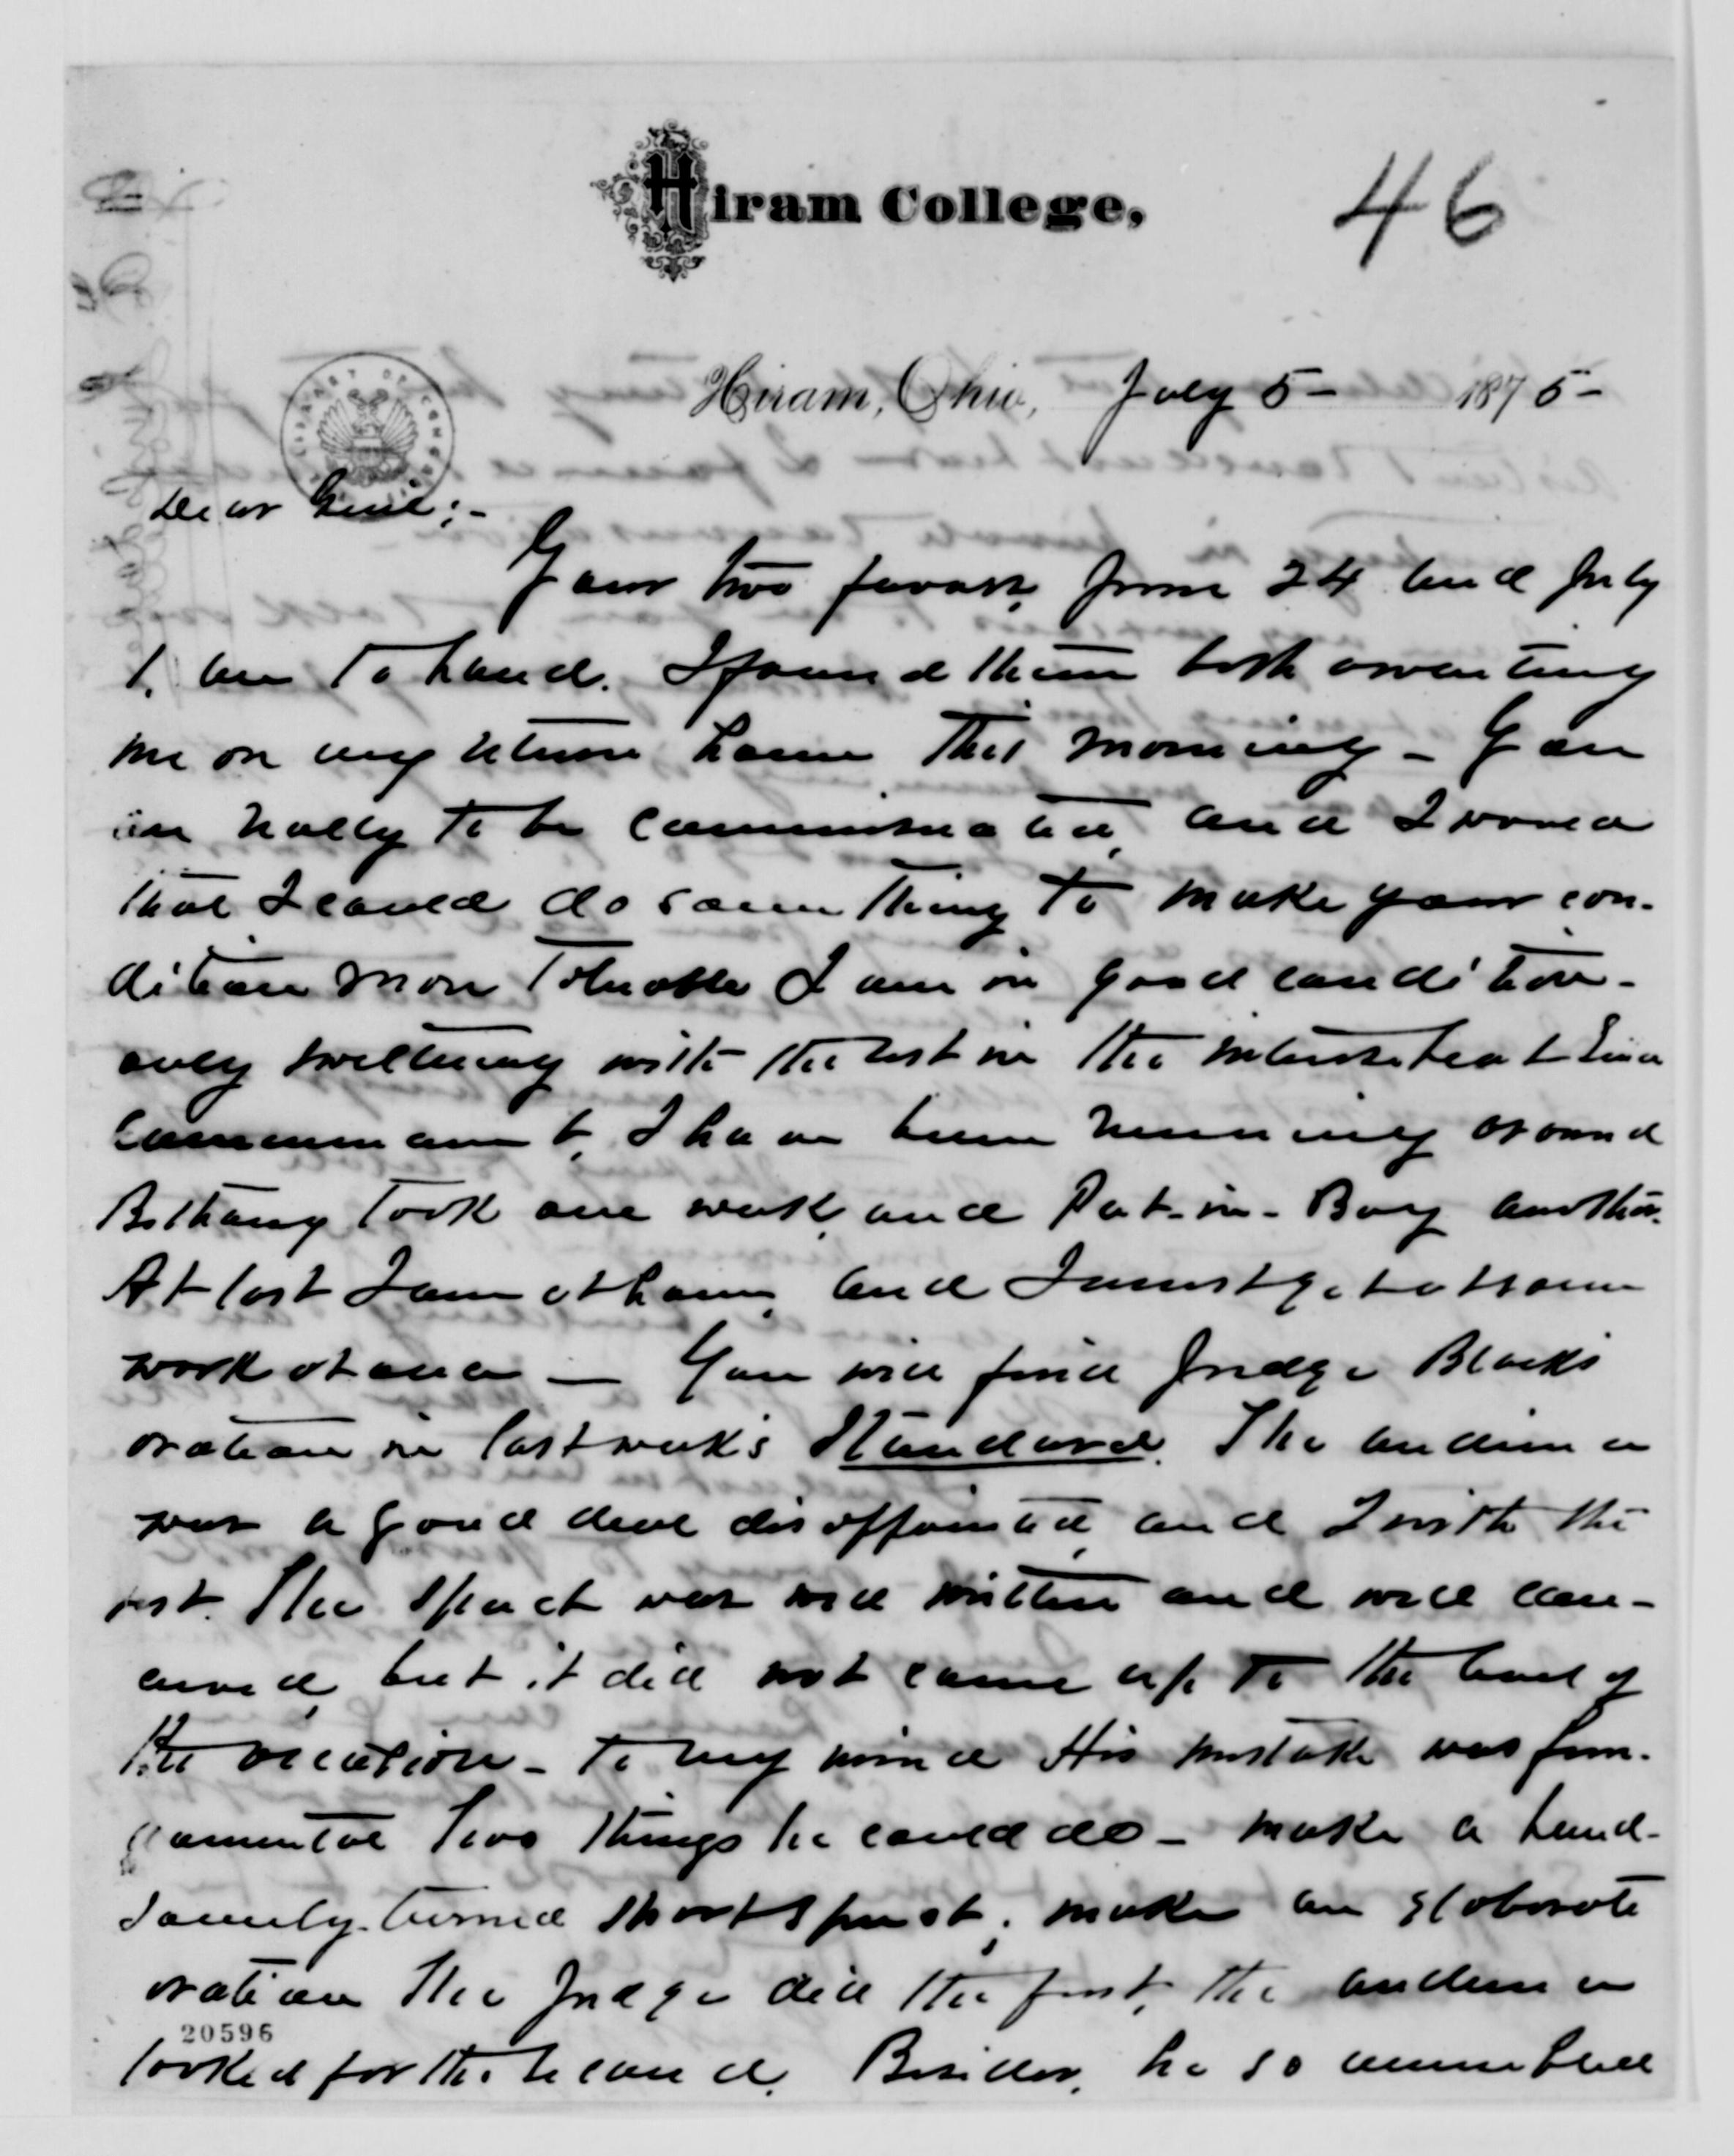 Hiram College,
46
Hiram, Ohio, July 5- 1875-
Dear Genl;-
Your two favors, June 24 and July
1, are to hand. I found them both awaiting
me on my return home this morning - You
are really to be commiserated, and I would
that I could do something to make your con-
dition more tolerable I am in good condition -
only sweltering with the rest in the intense heat Since
Commencement, I have been running around
Bethany took one week, and Put-in-Bay another.
At last I am at home, and I must get at some
work at once — You will find Judge Black's
oration in last week's Standard. The audience
was a good deal disappointed, and I with the
rest. The speech was well written and well con-
ceived, but it did not come up to the level of
the occasion - to my mind His mistake was fun-
damental Two things he could do - make a hand-
somely-turned short speech; make an elaborate
oration The Judge did the first, the audience
20596
looked for the second. Besides, he so